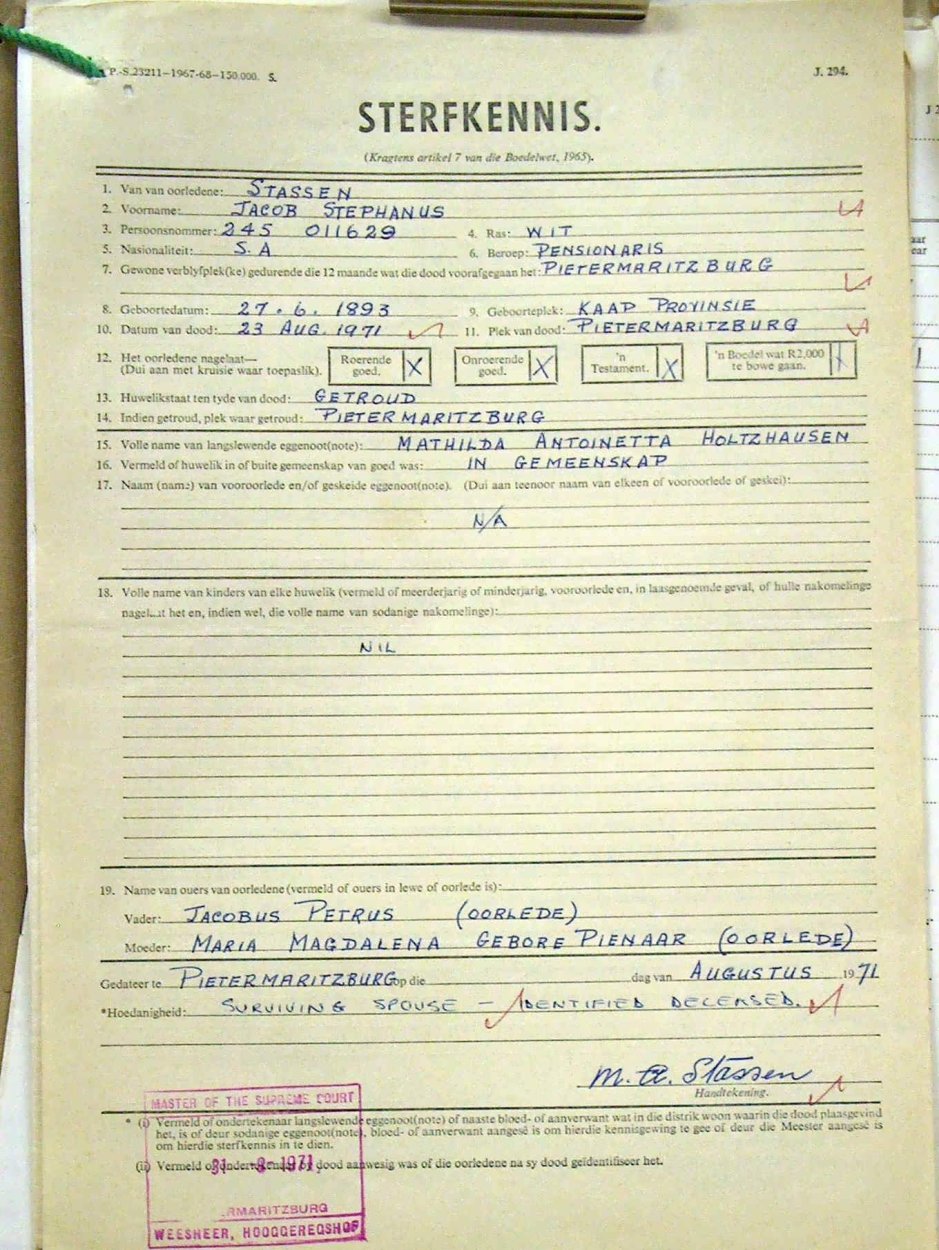 P.-S.23211—1967-68—150,000. S.
J. 294.
STERFKENNIS.
(Kragtens artikel 7 van die Boedelwet, 1965).
1. Van van oorledene: STASSEN
2. Voorname: JACOB STEPHANUS
3. Persoonsnommer: 245 011629 4. Ras: WIT
5. Nasionaliteit: S.A 6. Beroep: PENSIONARIS
7. Gewone verblyfplek(ke) gedurende die 12 maande wat die dood voorafgegaan het: PIETERMARITZBURG
8. Geboortedatum: 27.6.1893 9. Geboorteplek: KAAP PROVINSIE
10. Datum van dood: 23 AUG. 1971 11. Plek van dood: PIETERMARITZBURG
12. Het oorledene nagelaat—
(Dui aan met kruisie waar toepaslik).
Roerende goed. X
Onroerende goed. X
'n Testament. X
'n Boedel wat R2,000 te bowe gaan.
13. Huwelikstaat ten tyde van dood: GETROUD
14. Indien getroud, plek waar getroud: PIETERMARITZBURG
15. Volle name van langslewende eggenoot(note): MATHILDA ANTOINETTA HOLTZHAUSEN
16. Vermeld of huwelik in of buite gemeenskap van goed was: IN GEMEENSKAP
17. Naam (name) van vooroorlede en/of geskeide eggenoot(note). (Dui aan teenoor naam van elkeen of vooroorlede of geskei):
N/A
18. Volle name van kinders van elke huwelik (vermeld of meerderjarig of minderjarig, vooroorlede en, in laasgenoemde geval, of hulle nakomelinge
nagelaat het en, indien wel, die volle name van sodanige nakomelinge):
NIL
19. Name van ouers van oorledene (vermeld of ouers in lewe of oorlede is):
Vader: JACOBUS PETRUS (OORLEDE)
Moeder: MARIA MAGDALENA GEBORE PIENAAR (OORLEDE)
Gedateer te PIETERMARITZBURG op die dag van AUGUSTUS 1971
*Hoedanigheid: SURVIVING SPOUSE — IDENTIFIED DECEASED.
M. A. Stassen
Handtekening.
* (i) Vermeld of ondertekenaar langslewende eggenoot(note) of naaste bloed- of aanverwant wat in die distrik woon waarin die dood plaasgevind
het, is of deur sodanige eggenoot(note), bloed- of aanverwant aangesê is om hierdie kennisgewing te gee of deur die Meester aangesê is
om hierdie sterfkennis in te dien.
(ii) Vermeld of ondertekenaar by dood aanwesig was of die oorledene na sy dood geïdentifiseer het.
MASTER OF THE SUPREME COURT
31 -8-1971
RMARITZBURG
WEESHEER, HOOGGEREGSHOF